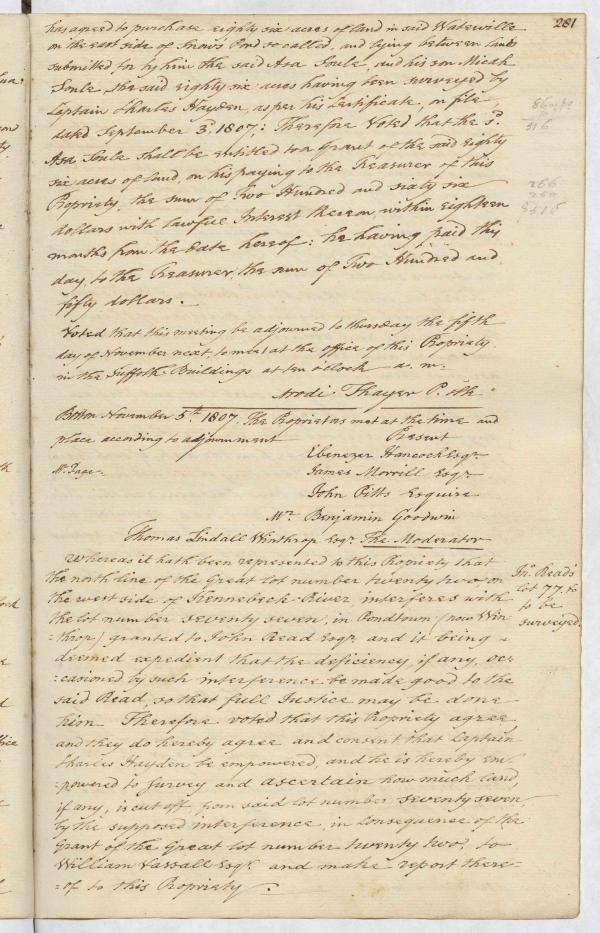 281
has agreed to purchase eighty six acres of land in said Waterville
on the east side of Snow's Pond so called, and lying between lands
submitted for by him the said Asa Soule, and his son Micah
Soule, the said eighty six acres having been surveyed by
Captain Charles Hayden, as per his Certificate, on file,
dated September 3d. 1807: Therefore Voted that the sd.
Asa Soule shall be entitled to a Grant of the said eighty
six acres of land, on his paying to the Treasurer of this
Propriety, the sum of Two Hundred and sixty six
dollars with lawfull Interest thereon, within eighteen
months from the date hereof: he having paid this
day, to the Treasurer, the sum of Two Hundred and
fifty dollars.
266
250
Voted that this meeting be adjourned to thursday the fifth
day of November next, to meet at the office of this Propriety
in the Suffolk Buildings at ten o'clock a. m.
Arodi Thayer P. Clk
Boston November 5th 1807. The Proprietors met at the time and
place according to adjournment
Present
Ebenezer Hancock Esqr.
Mr. Page
James Morrill Esqr.
John Pitts Esquire
Mr. Benjamin Goodwin
Thomas Lindall Winthrop Esqr. The Moderator
Whereas it hath been represented to this Propriety that
the north line of the Great lot number twenty two on
the west side of Kennebeck River, interferes with
the lot number seventy seven, in Pondtown (now Win
:throp) granted to John Read Esqr. and it being
deemed expedient that the deficiency, if any, oc:
:casioned by such interference be made good to the
said Read, so that full Justice may be done
him Therefore voted that this Propriety agree,
and they do hereby agree and consent that Captain
Charles Hayden be empowered, and he is hereby em:
:powered to Survey and ascertain how much land,
if any, is cut off from said lot number seventy seven,
by the supposed interference, in consequence of the
Grant of the Great lot number twenty two, to
William Vassall Esqr. and make report there:
:of to this Propriety.
Jn. Read's
lot 77. to
to be
surveyed.